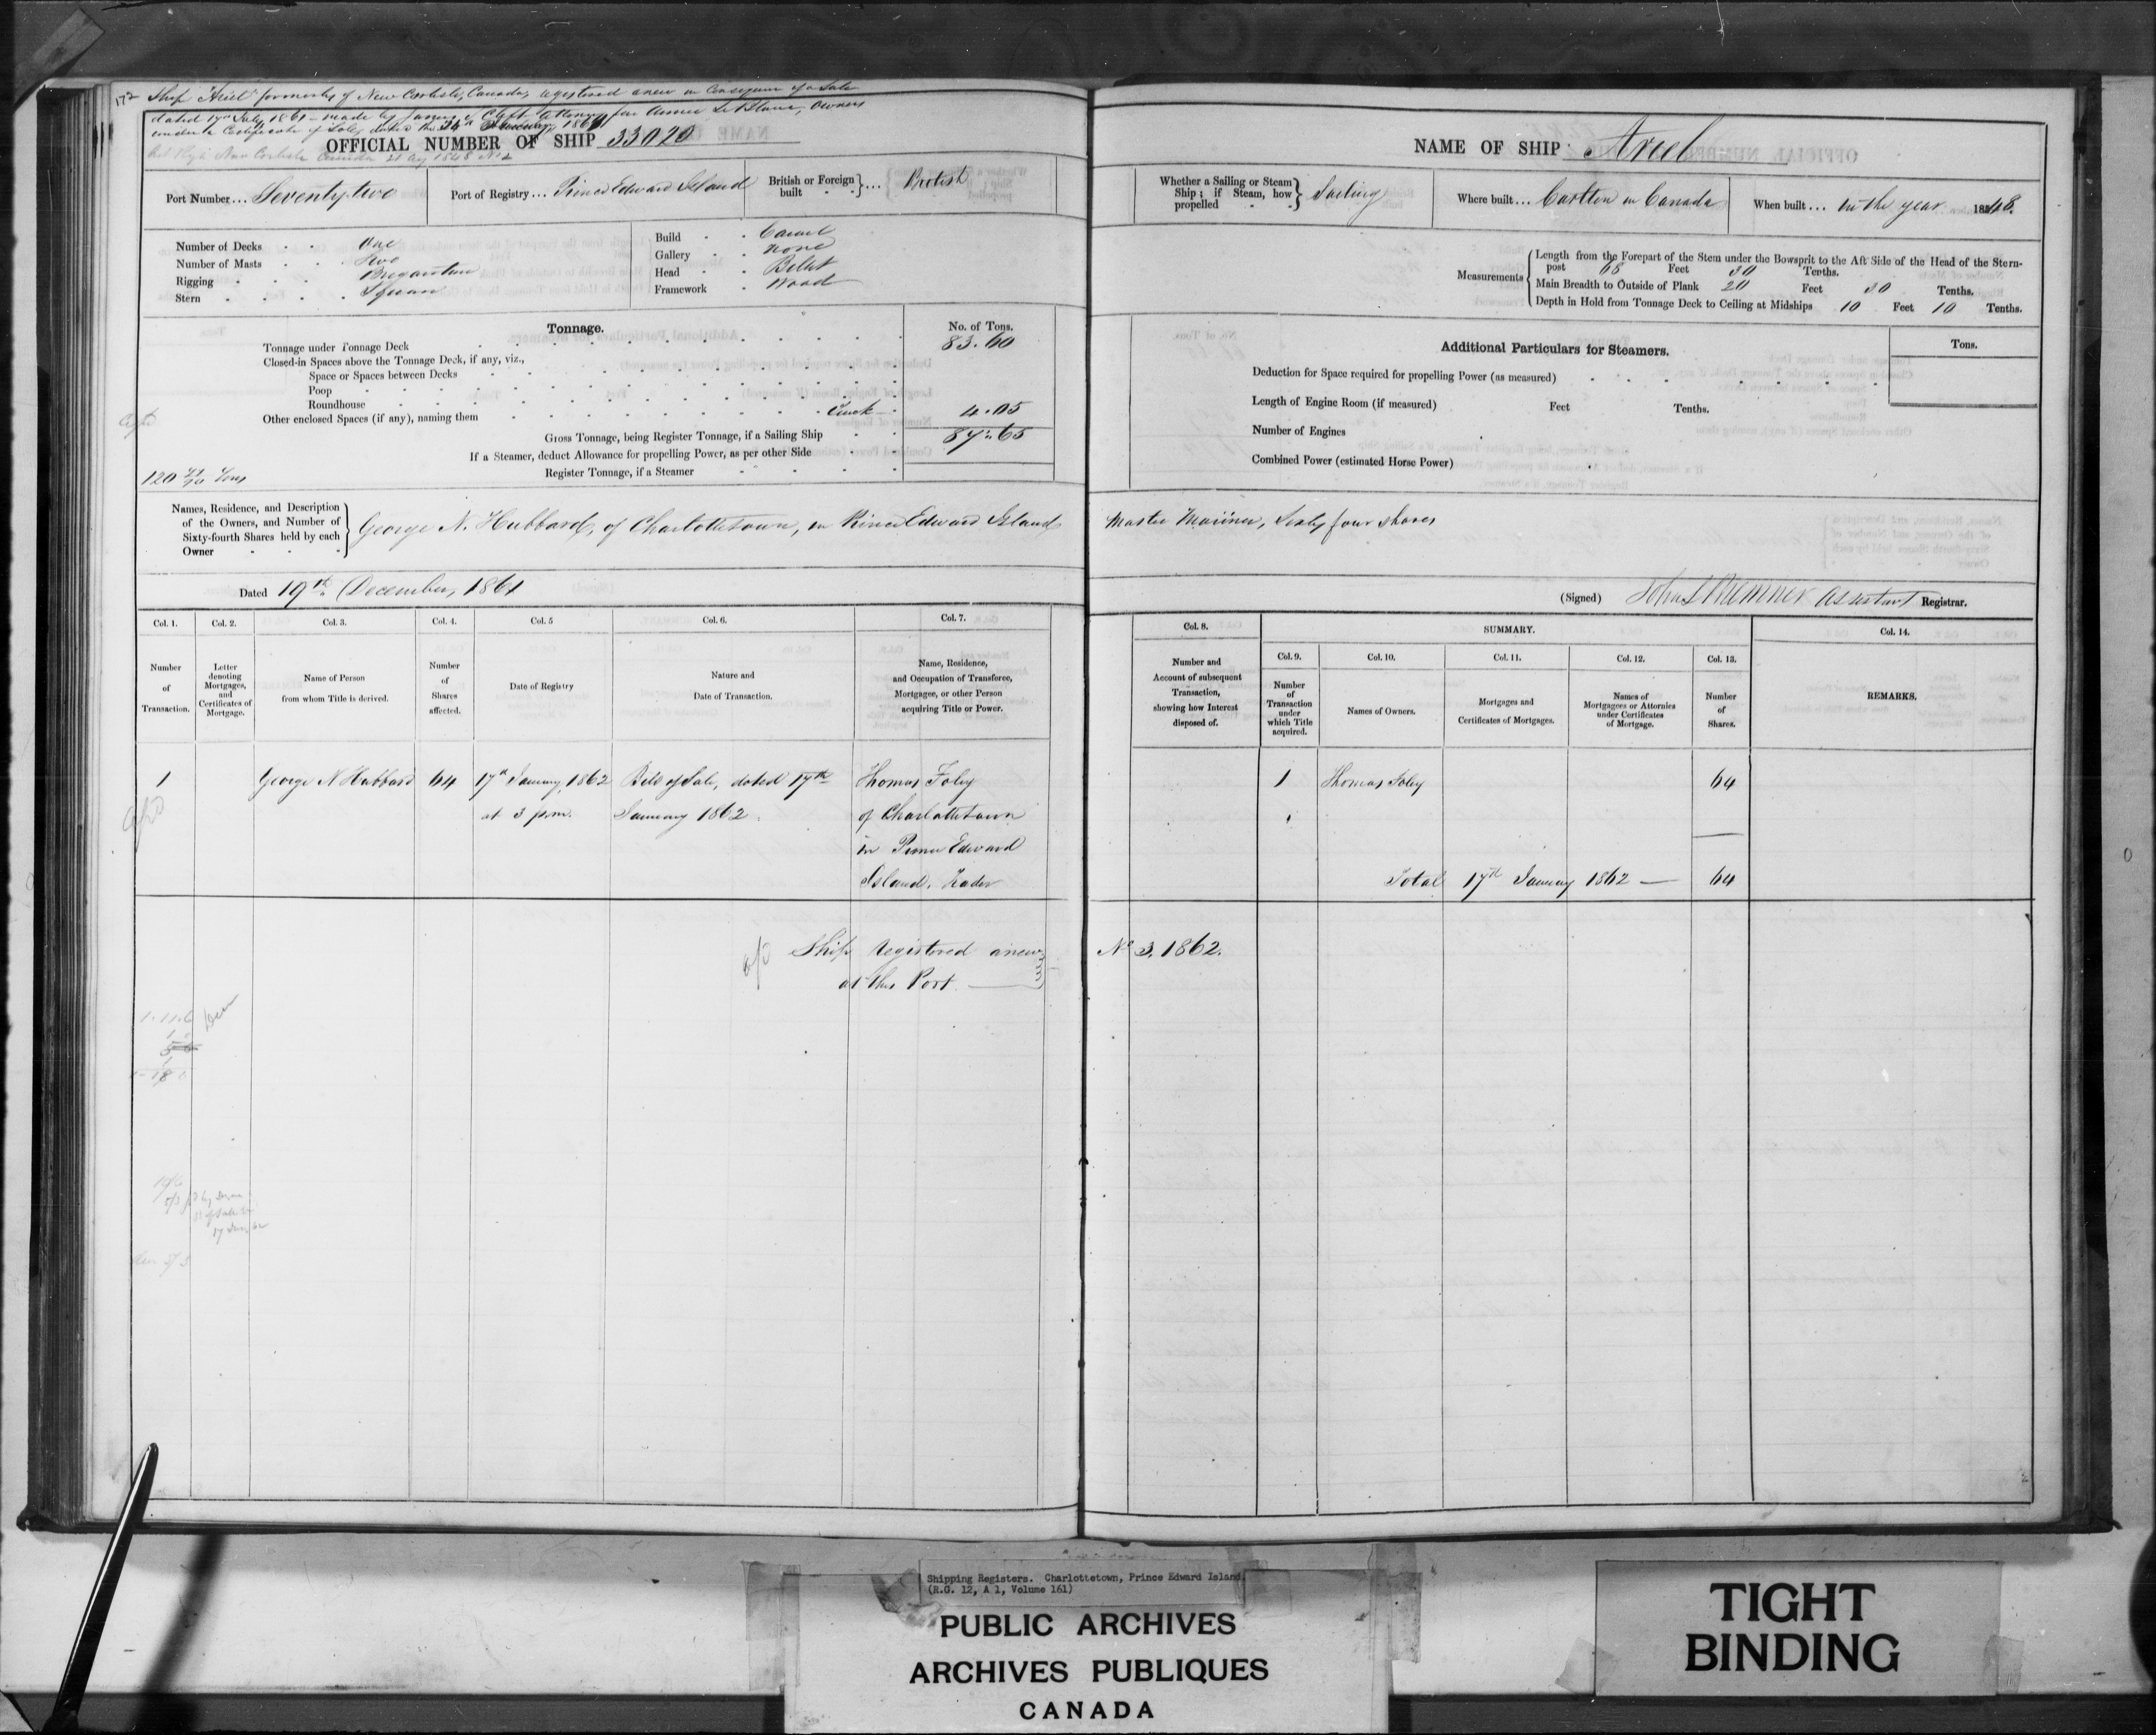 172 Ship "Ariel" formerly of New Carlisle, Canada, registered anew in consequence of a Sale
dated 17th July 1861 - made by James Clift attorney for Le Blanc, Owners
under a Certificate of Sale, dated the 24th January, 1861
New Carlisle Canada 21 Aug 1848 No 2
OFFICIAL NUMBER OF SHIP 33020
Port Number... Seventy two
Port of Registry... Prince Edward Island
British or Foreign built }... British
Number of Decks One
Number of Masts Two
Rigging Brigantine
Stern Square
Build Carvel
Gallery None
Head Billet
Framework Wood
Tonnage.
No. of Tons.
Tonnage under Tonnage Deck 83.60
Closed-in Spaces above the Tonnage Deck, if any, viz.,
Space or Spaces between Decks
Poop
Roundhouse
Other enclosed Spaces (if any), naming them 4.05
Gross Tonnage, being Register Tonnage, if a Sailing Ship 87.65
If a Steamer, deduct Allowance for propelling Power, as per other Side
Register Tonnage, if a Steamer
120 Tons
Names, Residence, and Description
of the Owners, and Number of
Sixty-fourth Shares held by each
Owner
George N. Hubbard, of Charlottetown, in Prince Edward Island
Dated 19th December, 1861
Col. 1. Col. 2. Col. 3. Col. 4. Col. 5 Col. 6. Col. 7.
Number of Transaction.
Letter denoting Mortgages, and Certificates of Mortgage.
Name of Person from whom Title is derived.
Number of Shares affected.
Date of Registry
Nature and Date of Transaction.
Name, Residence, and Occupation of Transferee, Mortgagee, or other Person acquiring Title or Power.
1 George N Hubbard 64 17th January, 1862 Bill of Sale, dated 17th Thomas Foley
at 3 p.m. January 1862. of Charlottetown
in Prince Edward
Island. Trader
Ship registered anew
at this Port
NAME OF SHIP Ariel
Whether a Sailing or Steam
Ship; if Steam, how
propelled } Sailing
Where built... Carlton in Canada
When built... In the year 1848.
Measurements
Length from the Forepart of the Stem under the Bowsprit to the Aft Side of the Head of the Stern-
post 68 Feet 30 Tenths.
Main Breadth to Outside of Plank 20 Feet 30 Tenths.
Depth in Hold from Tonnage Deck to Ceiling at Midships 10 Feet 10 Tenths.
Additional Particulars for Steamers.
Tons.
Deduction for Space required for propelling Power (as measured)
Length of Engine Room (if measured) Feet Tenths.
Number of Engines
Combined Power (estimated Horse Power)
Master Mariner, Sixty four shares
(Signed) John Bremner Assistant Registrar.
Col. 8. SUMMARY. Col. 14.
Col. 9. Col. 10. Col. 11. Col. 12. Col. 13.
Number and Account of subsequent Transaction, showing how Interest disposed of.
Number of Transaction under which Title acquired.
Names of Owners.
Mortgages and Certificates of Mortgages.
Names of Mortgagees or Attornies under Certificates of Mortgage.
Number of Shares.
REMARKS.
1 Thomas Foley 64
Total 17th January 1862 — 64
No 3, 1862.
Shipping Registers. Charlottetown, Prince Edward Island
(R.G. 12, A 1, Volume 161)
PUBLIC ARCHIVES
ARCHIVES PUBLIQUES
CANADA
TIGHT
BINDING